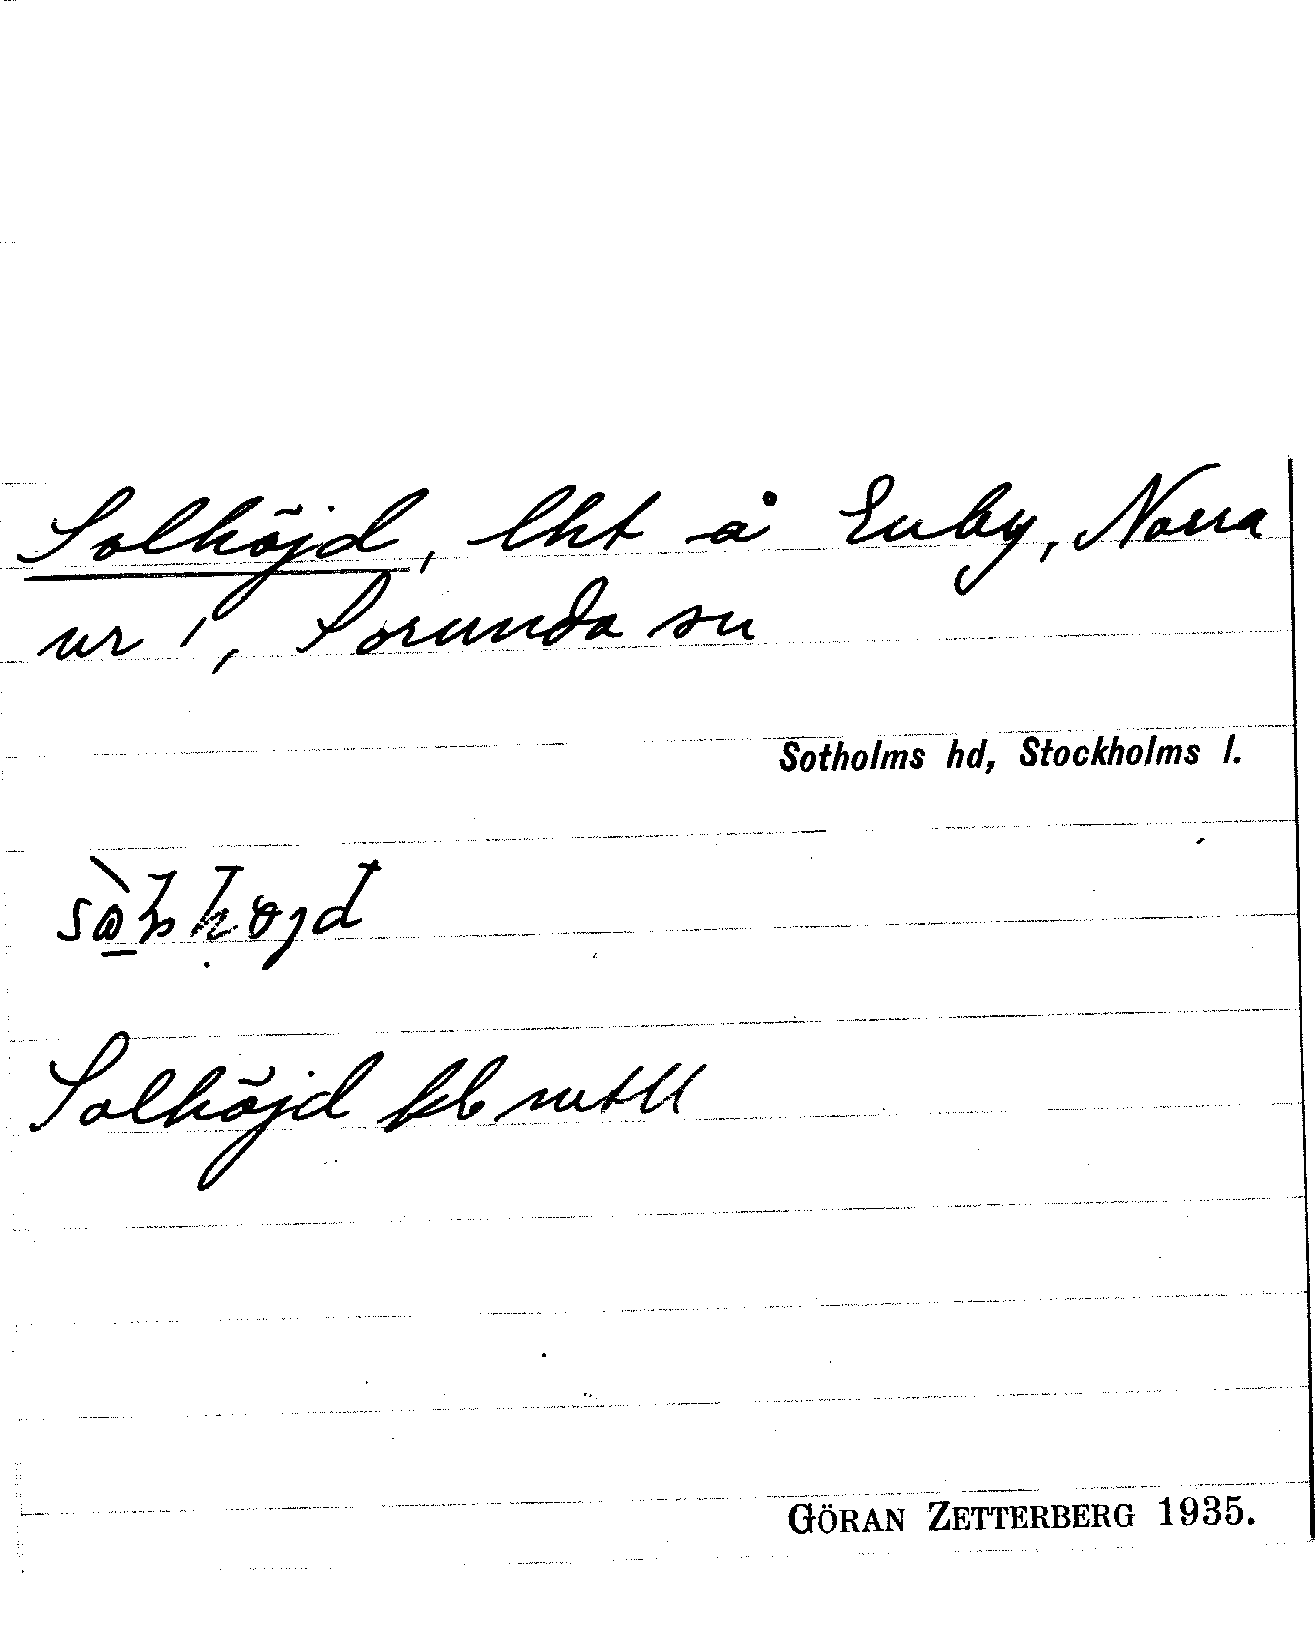 Solhöjd, lht å Enby, Norra
nr 1, Sorunda sn
Sotholms hd, Stockholms l.
Solhöjd jkb mtll
GÖRAN ZETTERBERG 1935.